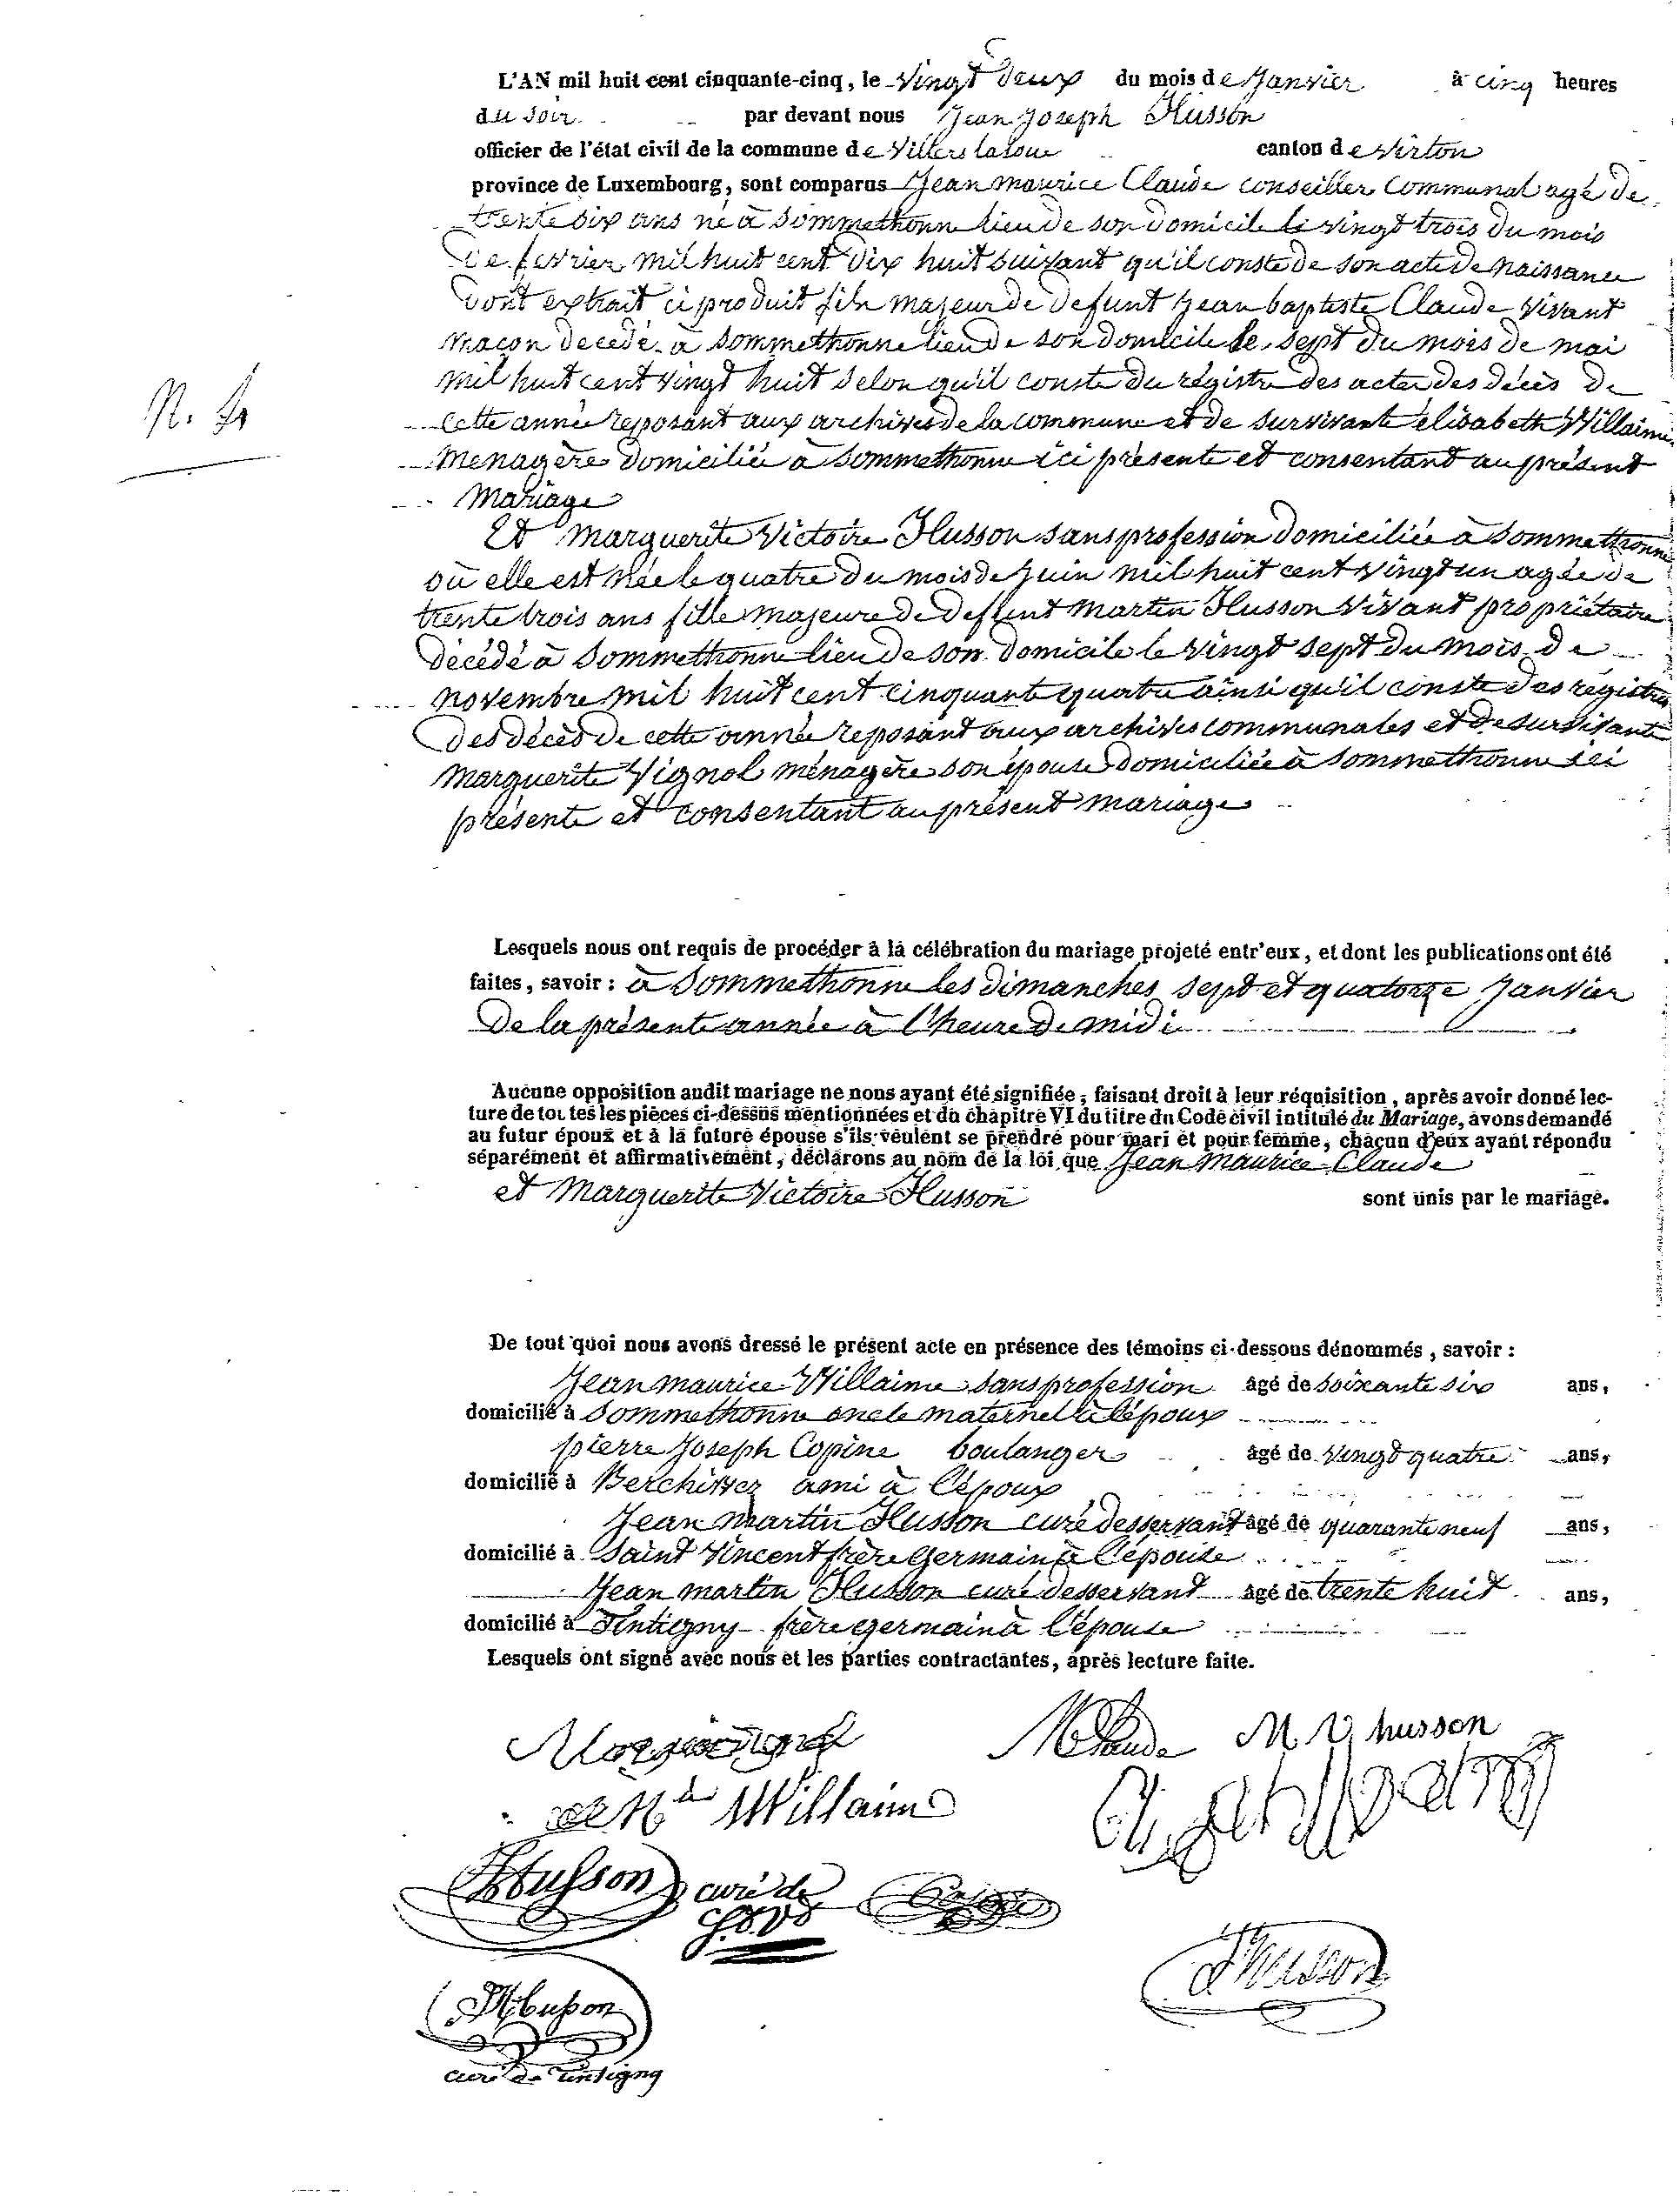 L'AN mil huit cent cinquante-cinq, le vingt deux du mois de Janvier à cinq heures
du soir par devant nous Jean Joseph Husson
officier de l'état civil de la commune de Villers laloue canton de virton
province de Luxembourg, sont comparus Jean maurice Claude conseiller communal agé de
trente six ans né à Sommethonne lieu de son domicile le vingt trois du mois
de fevrier mil huit cent dix huit suivant qu'il conste de son acte de naissance
dont extrait ci produit fils majeur de defunt Jean baptiste Claude vivant
maçon decedé à sommethonne lieu de son domicile le sept du mois de mai
mil huit cent vingt huit selon qu'il conste du régistre des actes des décès de
cette année reposant aux archives de la commune et de survivante élisabeth Willaime
N. 4
menagère domiciliée à sommethonne ici présente et consentant au présent
mariage
Et marguerite Victoire Husson sans profession domiciliée à sommethonne
où elle est née le quatre du mois de Juin mil huit cent vingt un agée de
trente trois ans fille majeure de defunt martin Husson vivant propriétaire
décédé à Sommethonne lieu de son domicile le vingt sept du mois de
novembre mil huit cent cinquante quatre ainsi qu'il conste des régistres
des décès de cette année reposant aux archives communales et de survivante
marguerite Vignol ménagère son épouse domiciliée à sommethonne ici
présente et consentant au présent mariage
Lesquels nous ont requis de procéder à la célébration du mariage projeté entr'eux, et dont les publications ont été
faites, savoir : à Sommethonne les dimanches sept et quatorze Janvier
De la présente année à l'heure de midi
Aucune opposition audit mariage ne nous ayant été signifiée, faisant droit à leur réquisition, après avoir donné lec-
ture de toutes les pièces ci-dessus mentionnées et du chapitre VI du titre du Code civil intitulé du Mariage, avons demandé
au futur époux et à la future épouse s'ils veulent se prendre pour mari et pour femme, chacun d'eux ayant répondu
séparément et affirmativement, déclarons au nom de la loi que Jean maurice Claude
et Marguerite Victoire Husson sont unis par le mariage.
De tout quoi nous avons dressé le présent acte en présence des témoins ci-dessous dénommés, savoir :
Jean maurice Willaime sans profession âgé de soixante six ans,
domicilié à Sommethonne oncle maternel à l'époux
pierre Joseph Copine boulanger âgé de vingt quatre ans,
domicilié à Berchivez ami à l'époux
Jean martin Husson curé desservant âgé de quarante neuf ans,
domicilié à Saint Vincent frère germain à l'épouse
Jean martin Husson curé desservant âgé de trente huit ans,
domicilié à Tintigny frère germain à l'épouse
Lesquels ont signé avec nous et les parties contractantes, après lecture faite.
MClaude M V husson
Willaime
Husson curé de
St. Vt
JHusson
JMhusson
curé de Tintigny